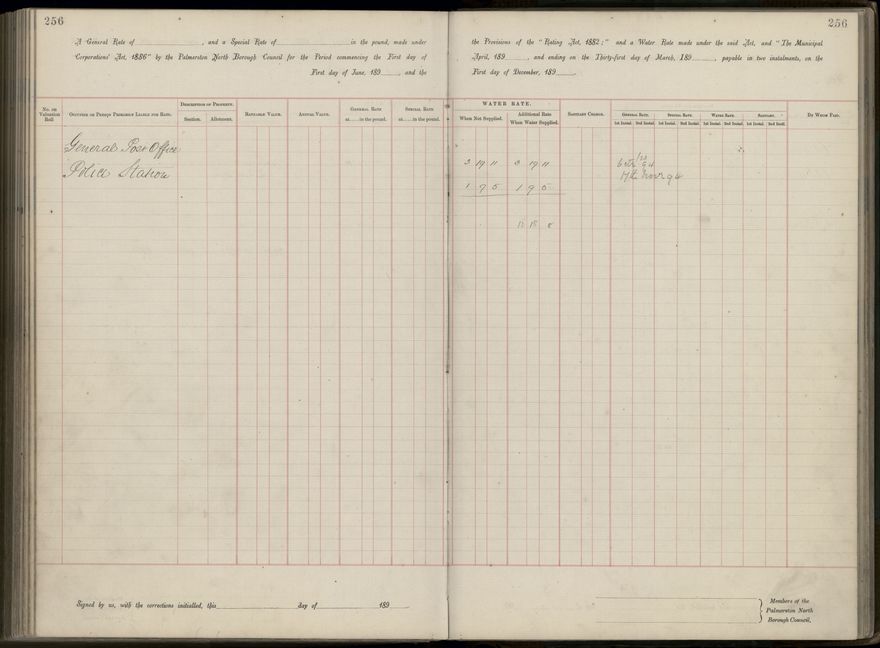 256
256
A General Rate of , and a Special Rate of in the pound, made under
the Provisions of the "Rating Act, 1882;" and a Water Rate made under the said Act, and "The Municipal
Corporations' Act, 1886" by the Palmerston North Borough Council for the Period commencing the First day of
April, 189 , and ending on the Thirty-first day of March, 189 , payable in two instalments, on the
First day of June, 189 , and the
First day of December, 189 .
No. on Valuation Roll
Occupier or Person Primarily Liable for Rate.
Description of Property.
Section. Allotment.
Rateable Value.
Annual Value.
General Rate
at in the pound.
Special Rate
at in the pound.
WATER RATE.
When Not Supplied.
Additional Rate
When Water Supplied.
Sanitary Charge.
General Rate. Special Rate. Water Rate. Sanitary.
1st Instal. 2nd Instal. 1st Instal. 2nd Instal. 1st Instal. 2nd Instal. 1st Instal. 2nd Instl.
By Whom Paid.
General Post Office
3 19 11 3 19 11
Police Station
17th Novr 94
1 9 5 1 9 5
Signed by us, with the corrections initialled, this day of 189
Members of the
Palmerston North
Borough Council,